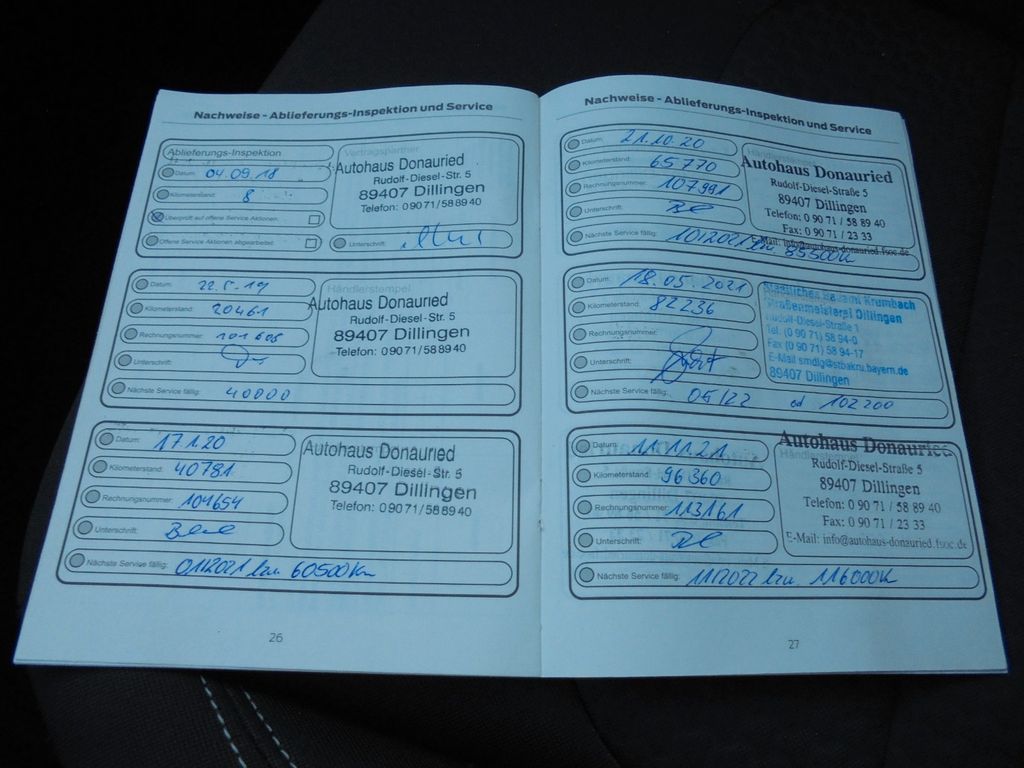 Nachweise - Ablieferungs-Inspektion und Service
Ablieferungs-Inspektion
Datum: 04.09.18
Kilometerstand: 8
Überprüft auf offene Service Aktionen:
Offene Service Aktionen abgearbeitet:
Vertragspartner
Autohaus Donauried
Rudolf-Diesel-Str. 5
89407 Dillingen
Telefon: 09071/588940
Unterschrift:
Datum: 22.5.19
Kilometerstand: 20461
Rechnungsnummer: 101605
Unterschrift:
Nächste Service fällig: 40000
Händlerstempel
Autohaus Donauried
Rudolf-Diesel-Str. 5
89407 Dillingen
Telefon: 09071/588940
Datum: 17.1.20
Kilometerstand: 40781
Rechnungsnummer: 104654
Unterschrift:
Nächste Service fällig: 01/2021 bzw. 60500 Km
Autohaus Donauried
Rudolf-Diesel-Str. 5
89407 Dillingen
Telefon: 09071/588940
26
Nachweise - Ablieferungs-Inspektion und Service
Datum: 21.10.20
Kilometerstand: 65770
Rechnungsnummer: 107991
Unterschrift:
Nächste Service fällig: 10/2021 bzw. 85500K
Händlerstempel
Autohaus Donauried
Rudolf-Diesel-Straße 5
89407 Dillingen
Telefon: 0 90 71 / 58 89 40
Fax: 0 90 71 / 23 33
E-Mail: info@autohaus-donauried.fsoc.de
Datum: 18.05.2021
Kilometerstand: 82236
Rechnungsnummer:
Unterschrift:
Nächste Service fällig: 05/22 od 102200
Staatliches Bauamt Krumbach
Straßenmeisterei Dillingen
Rudolf-Diesel-Straße 1
Tel. (0 90 71) 58 94-0
Fax (0 90 71) 58 94-17
E-Mail smdlg@stbakru.bayern.de
89407 Dillingen
Datum: 11.11.21
Kilometerstand: 96360
Rechnungsnummer: 113161
Unterschrift:
Nächste Service fällig: 11/2022 bzw. 116000K
Autohaus Donauried
Rudolf-Diesel-Straße 5
89407 Dillingen
Telefon: 0 90 71 / 58 89 40
Fax: 0 90 71 / 23 33
E-Mail: info@autohaus-donauried.fsoc.de
27